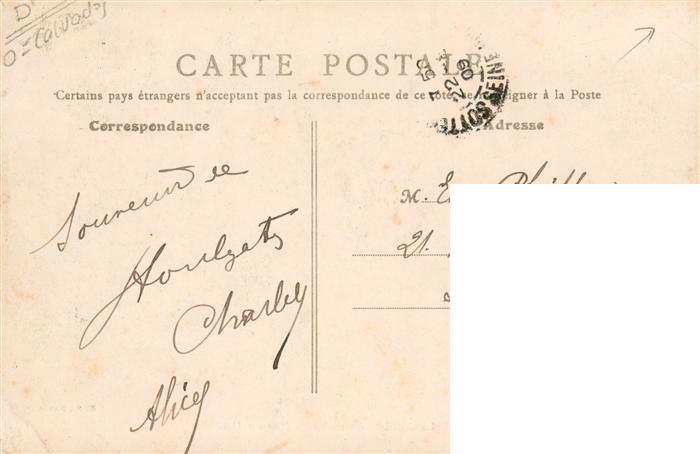 D
0 = Calvados
CARTE POSTALE
Certains pays étrangers n'acceptant pas la correspondance de ce côté, se renseigner à la Poste
Correspondance
Adresse
Souvenir de
Houlgate
Charley
Alice
M. E
21.
7 55
22
09
SEINE